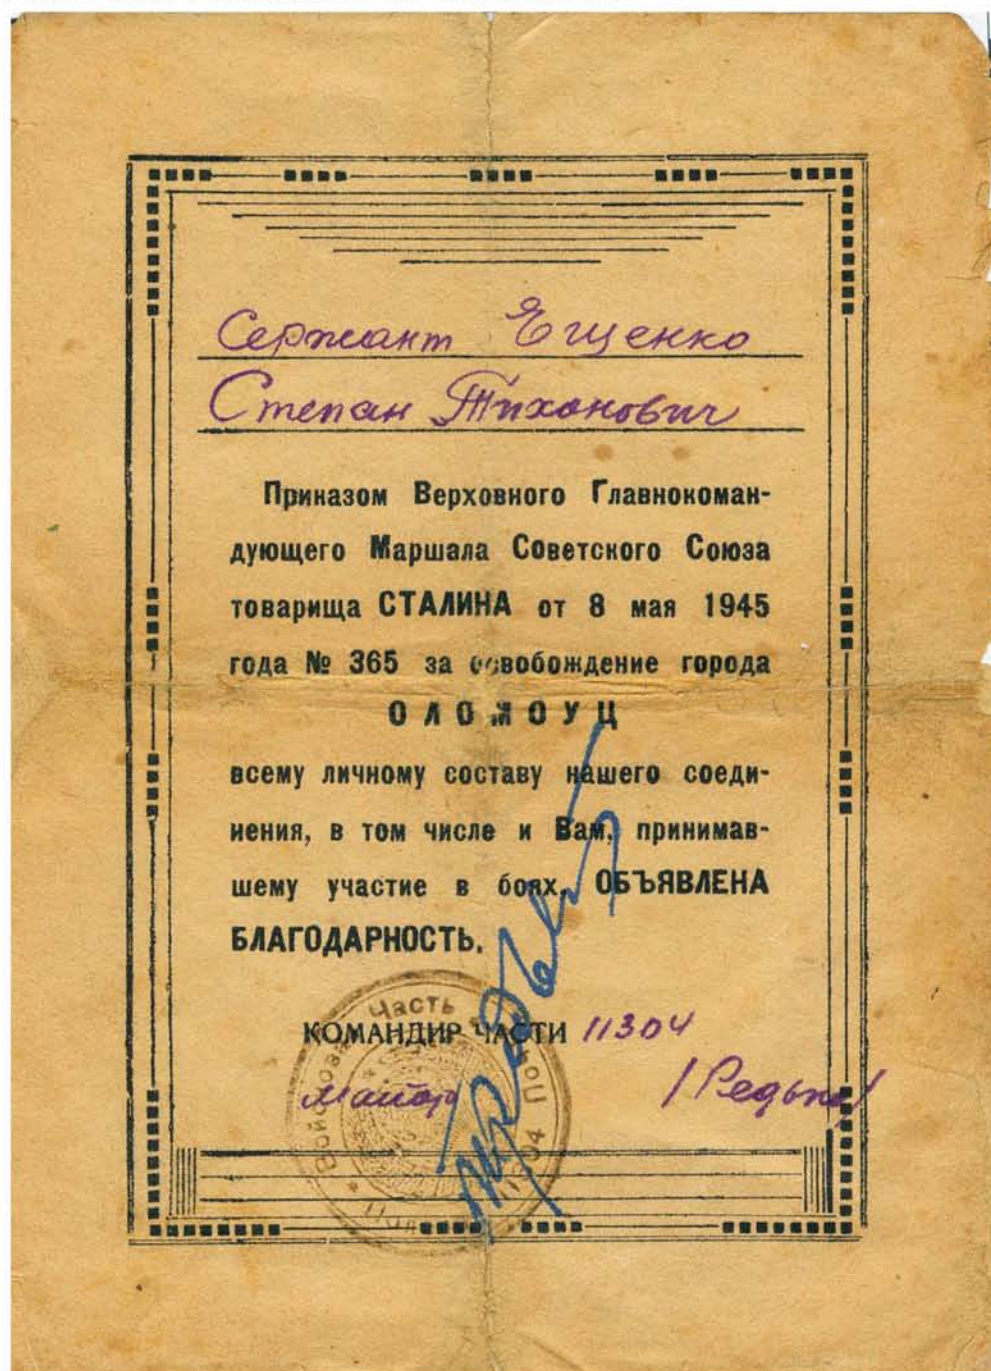 Сержант Ещенко
Степан Тихонович
Приказом Верховного Главнокоман-
дующего Маршала Советского Союза
товарища СТАЛИНА от 8 мая 1945
года № 365 за освобождение города
ОЛОМОУЦ
всему личному составу нашего соеди-
нения, в том числе и Вам, принимав-
шему участие в боях, ОБЪЯВЛЕНА
БЛАГОДАРНОСТЬ.
КОМАНДИР ЧАСТИ 11304
майор /Редько/
Войсковая Часть Полевая Почта 11304